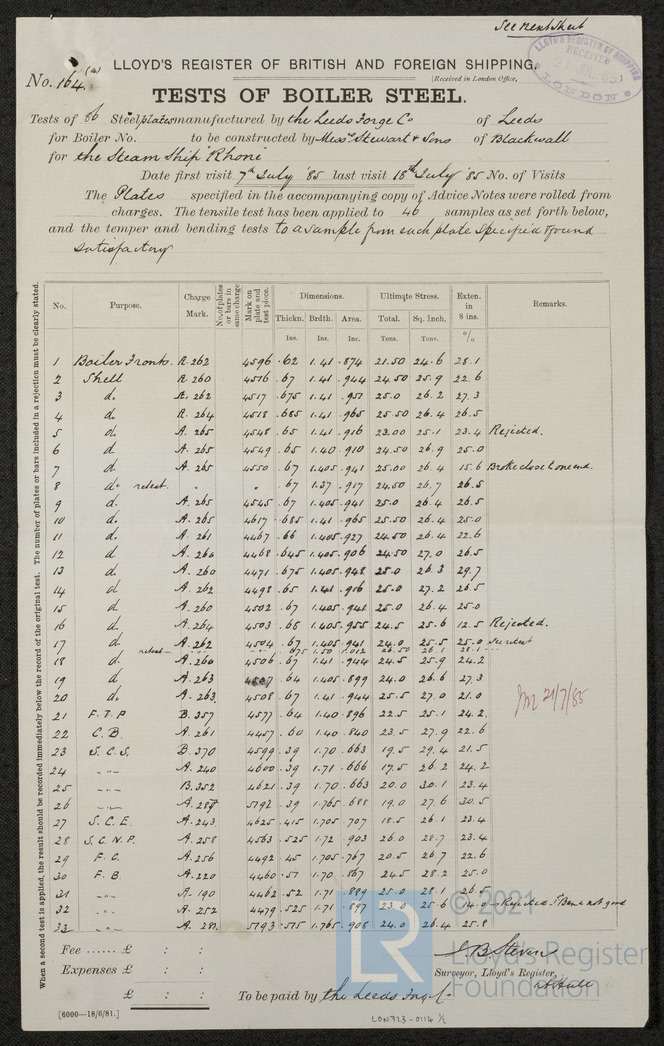 See Next Sheet
LLOYD'S REGISTER OF BRITISH AND FOREIGN SHIPPING.
No. 164 (a)
(Received in London Office, )
LLOYD'S REGISTER OF SHIPPING
RECEIVED
LONDON
TESTS OF BOILER STEEL.
Tests of 86 Steel plates manufactured by the Leeds Forge Co of Leeds
for Boiler No. to be constructed by Messrs Stewart & Sons of Blackwall
for the Steam Ship "Rhone"
Date first visit 7th July '85 last visit 18th July '85 No. of Visits
The Plates specified in the accompanying copy of Advice Notes were rolled from
charges. The tensile test has been applied to 46 samples as set forth below,
and the temper and bending tests to a sample from each plate specified & found
satisfactory
When a second test is applied, the result should be recorded immediately below the record of the original test. The number of plates or bars included in a rejection must be clearly stated.
No. Purpose. Charge Mark. No. of plates or bars in same charge Mark on plate and test piece. Dimensions. Ultimate Stress. Exten. in 8 ins. Remarks.
Thickn. Brdth. Area. Total. Sq. Inch.
Ins. Ins. Ins. Tons. Tons. %
1 Boiler Fronts. R. 262 4596 .62 1.41 .874 21.50 24.6 28.1
2 Shell R. 260 4516 .67 1.41 .944 24.50 25.9 22.6
3 do. R. 262 4517 .675 1.41 .951 25.0 26.2 27.3
4 do. R. 264 4518 .685 1.41 .965 25.50 26.4 26.5
5 do. A. 265 4548 .65 1.41 .916 23.00 25.1 23.4 Rejected.
6 do. A. 265 4549 .65 1.40 .910 24.50 26.9 25.0
7 do. A. 265 4550 .67 1.405 .941 25.00 26.4 15.6 Broke close to one end.
8 do. retest. " " .67 1.37 .917 24.50 26.7 26.5
9 do. A. 265 4545 .67 1.405 .941 25.0 26.4 26.5
10 do. A. 265 4617 .685 1.41 .965 25.50 26.4 25.0
11 do. A. 261 4467 .66 1.405 .927 24.50 26.4 22.6
12 do. A. 260 4468 .645 1.405 .906 24.50 27.0 26.5
13 do. A. 260 4471 .675 1.405 .948 25.0 26.3 29.7
14 do. A. 262 4498 .65 1.41 .916 25.0 27.2 26.5
15 do. A. 260 4502 .67 1.405 .941 25.0 26.4 25.0
16 do. A. 264 4503 .68 1.405 .955 24.5 25.6 12.5 Rejected.
17 do. A. 262 4504 .67 1.405 .941 24.0 25.5 25.0
retest .675 1.50 1.012 26.50 26.1 28.1
18 do. A. 260 4506 .67 1.41 .944 24.5 25.9 24.2
19 do. A. 263 4507 .64 1.405 .899 24.0 26.6 27.3
20 do. A. 263 4508 .67 1.41 .944 25.5 27.0 21.0
21/7/85
21 F.T.P B. 357 4577 .64 1.40 .896 22.5 25.1 24.2
22 C.B. A. 261 4457 .60 1.40 .840 23.5 27.9 22.6
23 S.C.S. B. 370 4599 .39 1.70 .663 19.5 29.4 21.5
24 " A. 240 4600 .39 1.71 .666 17.5 26.2 24.2
25 " B. 352 4621 .39 1.70 .663 20.0 30.1 23.4
26 " A. 287 5192 .39 1.765 .688 19.0 27.6 30.5
27 S.C.E. A. 243 4625 .415 1.705 .707 18.5 26.1 23.4
28 S.C.N.P. A. 258 4563 .525 1.72 .903 26.0 28.7 23.4
29 F.C. A. 256 4492 .45 1.705 .767 20.5 26.7 22.6
30 F.B. A. 220 4460 .51 1.70 .867 24.5 28.2 25.0
31 " A. 190 4462 .52 1.71 .889 25.0 28.1 26.5
32 " A. 252 4479 .525 1.71 .897 23.0 25.6 14.0 Rejected. Bend not good
33 " A. 287 5193 .515 1.765 .908 24.0 26.4 25.8
Fee ...... £ : :
Expenses £ : :
£ : :
J. B. Steven
Surveyor, Lloyd's Register,
To be paid by the Leeds Forge Co
[6000—18/6/81.]
LON723-0114 1/2
LR
© 2021
Lloyd's Register
Foundation